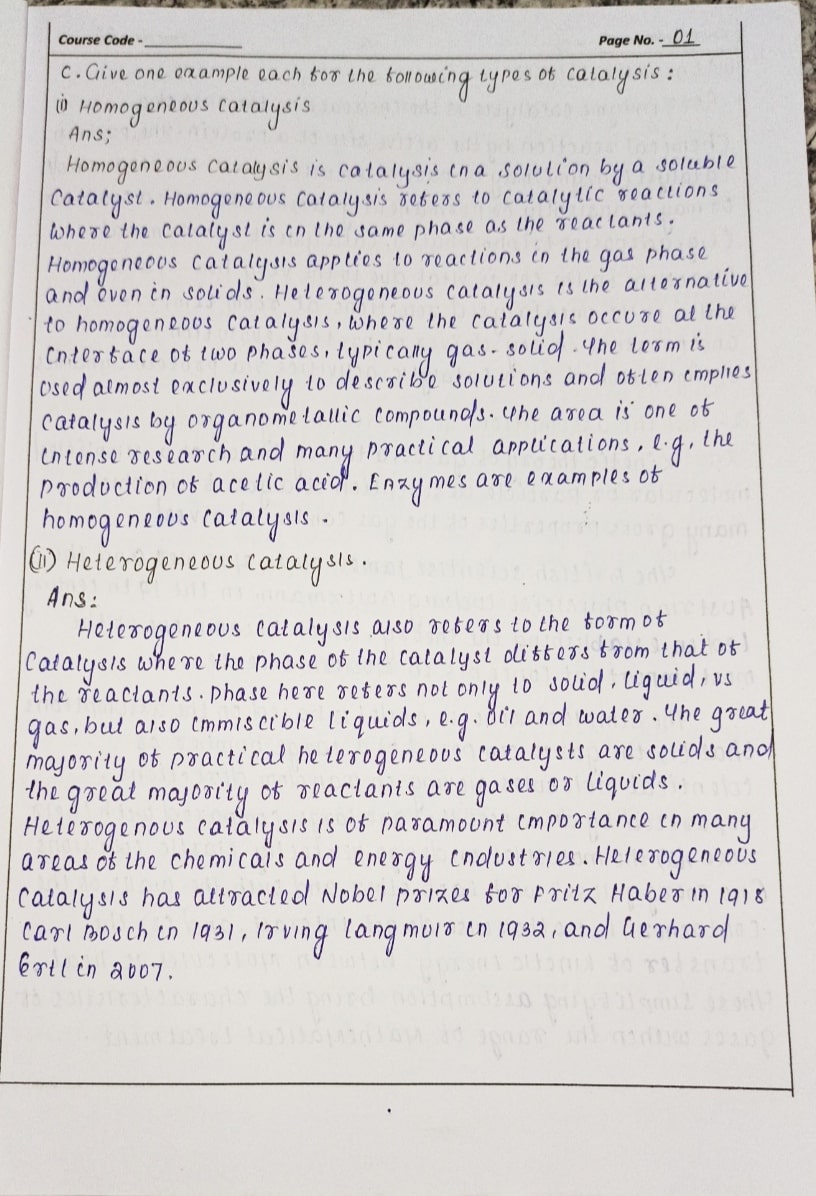 Course Code - 
Page No. - 01
C. Give one example each for the following types of catalysis :
(i) Homogeneous Catalysis
Ans;
Homogeneous Catalysis is catalysis in a solution by a soluble
Catalyst. Homogeneous Catalysis refers to catalytic reactions
where the Catalyst is in the same phase as the reactants.
Homogeneous catalysis applies to reactions in the gas phase
and even in solids. Heterogeneous catalysis is the alternative
to homogeneous Catalysis, where the catalysis occure at the
interface of two phases, typically gas-solid. The term is
used almost exclusively to describe solutions and often implies
catalysis by organometallic compounds. The area is one of
intense research and many practical applications, e.g, the
production of acetic acid. Enzymes are examples of
homogeneous Catalysis.
(ii) Heterogeneous Catalysis.
Ans:
Heterogeneous catalysis also refers to the form of
Catalysis where the phase of the catalyst differs from that of
the reactants. phase here refers not only to solid, liquid, vs
gas, but also immiscible liquids, e.g. oil and water. The great
majority of practical heterogeneous catalysts are solids and
the great majority of reactants are gases or liquids.
Heterogenous catalysis is of paramount importance in many
areas of the chemicals and energy industries. Heterogeneous
Catalysis has attracted Nobel prizes for Fritz Haber in 1918
Carl Bosch in 1931, Irving langmuir in 1932, and Gerhard
Ertl in 2007.